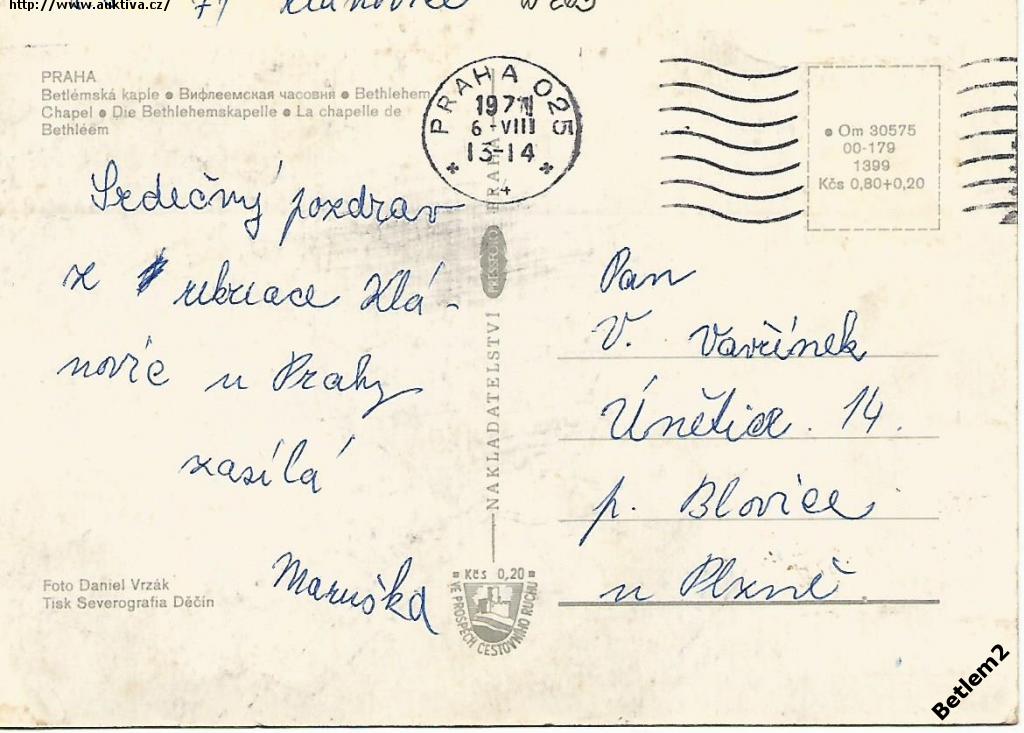 http://www.asktiva.cz/
71 Klánovice
PRAHA
Betlémská kaple • Вифлеемская часовня • Bethlehem
Chapel • Die Bethlehemskapelle • La chapelle de
Bethléem
PRAHA 025
1971
6-VIII
13-14
4
• Om 30575
00-179
1399
Kčs 0,80+0,20
Srdečný pozdrav
z rekreace Klá-
novic u Prahy
zasílá
Maruška
NAKLADATELSTVÍ PRESSFOTO PRAHA
Pan
V. Vavřínek
Únětice 14.
p. Blovice
u Plzně
Foto Daniel Vrzák
Tisk Severografia Děčín
Kčs 0,20
VE PROSPĚCH CESTOVNÍHO RUCHU
Betlem2